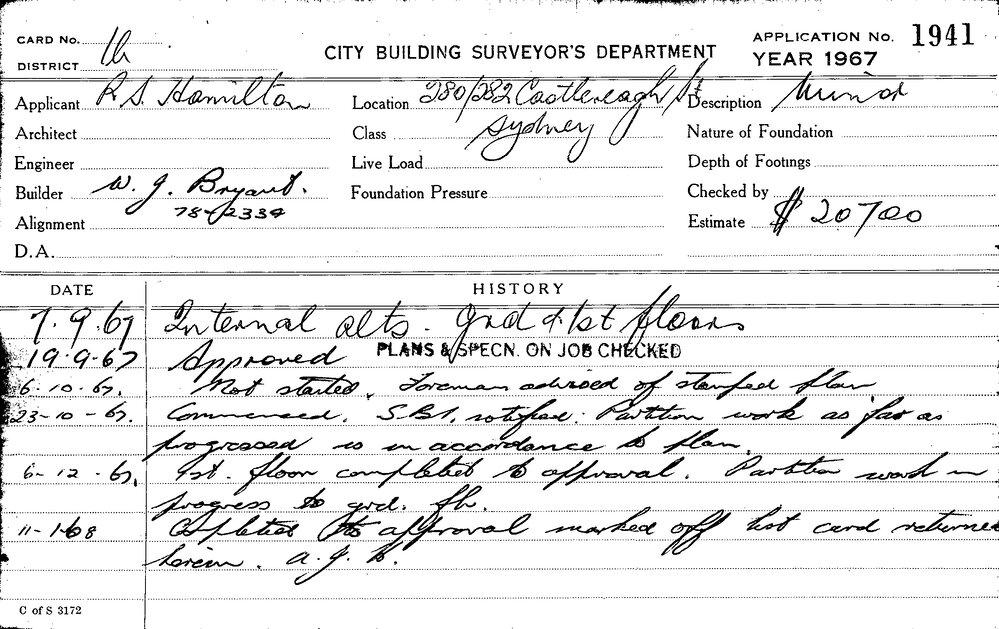 CARD No. 16
DISTRICT
CITY BUILDING SURVEYOR'S DEPARTMENT
APPLICATION No. 1941
YEAR 1967
Applicant R.S. Hamilton
Location 280/282 Castlereagh St
Sydney
Description Minor
Architect
Class
Nature of Foundation
Engineer
Live Load
Depth of Footings
Builder W. J. Bryant.
78-2334
Foundation Pressure
Checked by
Alignment
Estimate $20700
D.A.
DATE
HISTORY
7.9.67 Internal alts. grd & 1st floors
19-9-67 Approved PLANS & SPECN. ON JOB CHECKED
6-10-67. Not started. Foreman advised of stamped plan
23-10-67. Commenced. S.B.I. notified. Partition work as far as
progressed is in accordance to plan.
6-12-67. 1st. floor completed to approval. Partition work in
progress to grd. flr.
11-1-68 to approval marked off list card returned
herein. A.J.
C of S 3172